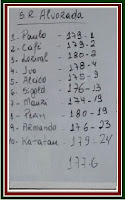 S.R Alvorada
1- Paulo - 179-1
2- Café - 179-2
3- Lorival - 180-2
4- Ivo - 178-4
5- Alcico - 175-9
6- Sigold - 176-13
7- Mauri - 174-19
8- Perin - 180-19
9- Armando - 176-23
10- Kataram - 179-24
177.6